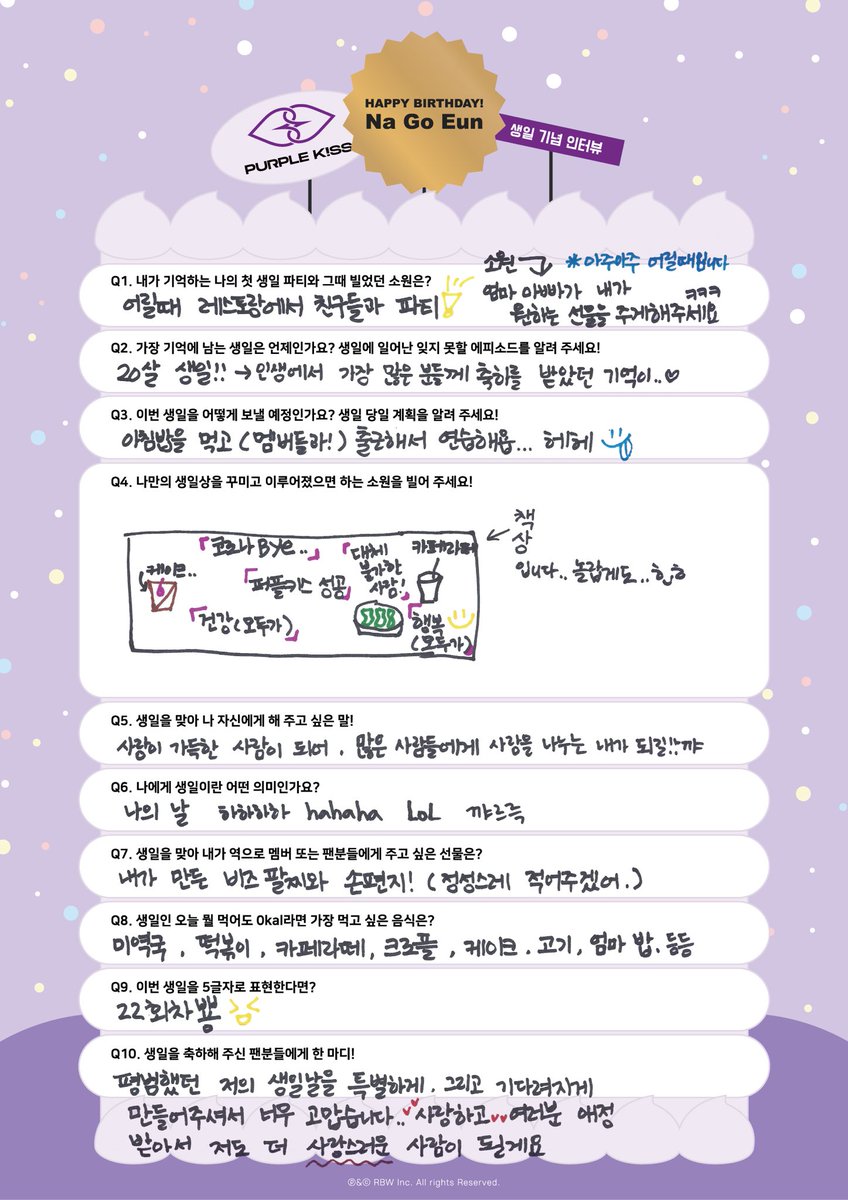 PURPLE K!SS
HAPPY BIRTHDAY!
Na Go Eun
생일 기념 인터뷰
Q1. 내가 기억하는 나의 첫 생일 파티와 그때 빌었던 소원은?
어릴때 레스토랑에서 친구들과 파티
소원
*아주아주 어릴때입니다
엄마 아빠가 내가 ㅋㅋㅋ
원하는 선물을 주게해주세요
Q2. 가장 기억에 남는 생일은 언제인가요? 생일에 일어난 잊지 못할 에피소드를 알려 주세요!
20살 생일!! → 인생에서 가장 많은 분들께 축하를 받았던 기억이..♡
Q3. 이번 생일을 어떻게 보낼 예정인가요? 생일 당일 계획을 알려 주세요!
아침밥을 먹고 (멤버들과!) 출근해서 연습해욥... 헤헤
Q4. 나만의 생일상을 꾸미고 이루어졌으면 하는 소원을 빌어 주세요!
「코로나 Bye..」
케이크..
「퍼플키스 성공」
「대체
불가한
사람!」
카페라떼
「건강(모두가)」
「행복
(모두가)」
← 책
상
입니다.. 놀랍게도..
Q5. 생일을 맞아 나 자신에게 해 주고 싶은 말!
사랑이 가득한 사람이 되어, 많은 사람들에게 사랑을 나누는 내가 되길!! 꺄
Q6. 나에게 생일이란 어떤 의미인가요?
나의 날 하하하하 hahaha LoL 꺄르륵
Q7. 생일을 맞아 내가 역으로 멤버 또는 팬분들에게 주고 싶은 선물은?
내가 만든 비즈 팔찌와 손편지! (정성스레 적어주겠어.)
Q8. 생일인 오늘 뭘 먹어도 0kal라면 가장 먹고 싶은 음식은?
미역국, 떡볶이, 카페라떼, 크로플, 케이크. 고기, 엄마 밥. 등등
Q9. 이번 생일을 5글자로 표현한다면?
22회차뿅
Q10. 생일을 축하해 주신 팬분들에게 한 마디!
평범했던 저의 생일날을 특별하게. 그리고 기다려지게
만들어주셔서 너무 고맙습니다.. 사랑하고 여러분 애정
받아서 저도 더 사랑스러운 사람이 될게요
℗&© RBW Inc. All rights Reserved.